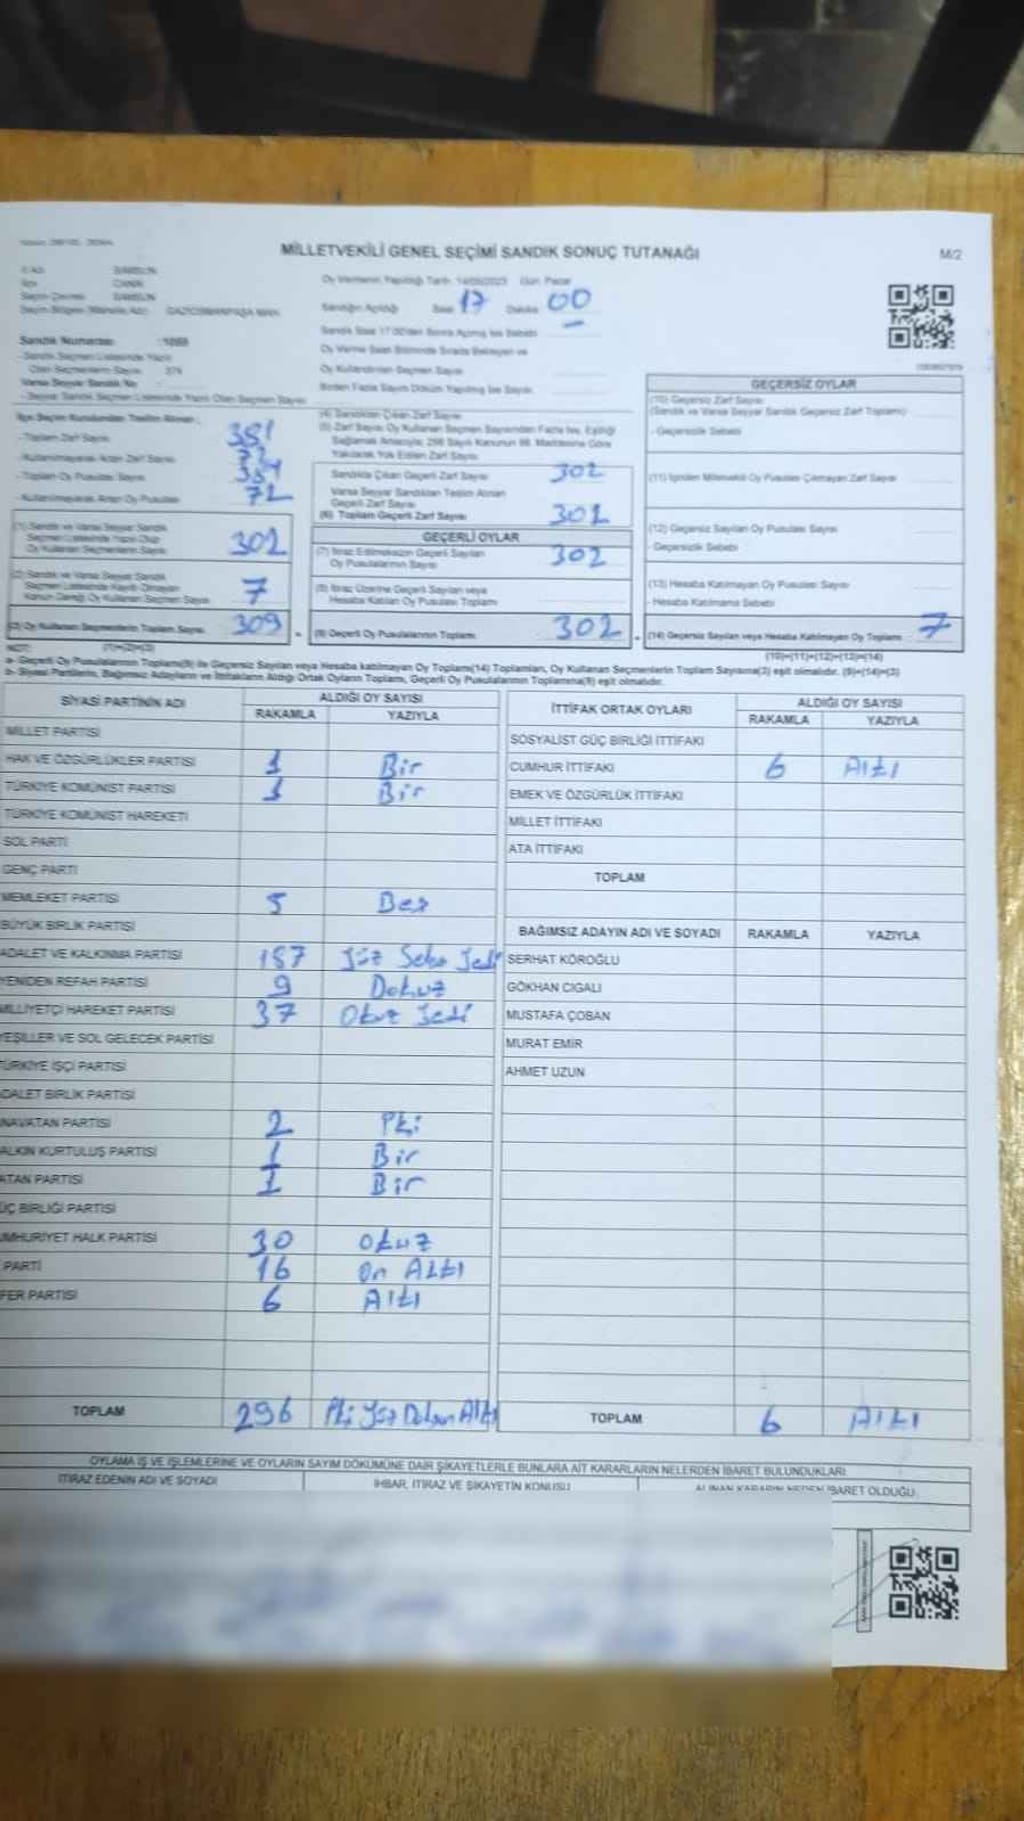 MİLLETVEKİLİ GENEL SEÇİMİ SANDIK SONUÇ TUTANAĞI
M/2
İli SAMSUN
İlçesi CANİK
Seçim Çevresi SAMSUN
Oy Vermenin Yapıldığı Tarih: 14/05/2023 Gün: Pazar
Sandığın Açıldığı Saat 17 Dakika 00
Sandık Saat 17.00'den Sonra Açılmış İse Sebebi
Oy Verme Saati Bitiminde Sırada Bekleyen ve
Oy Kullandırılan Seçmen Sayısı
Birden Fazla Sayım Döküm Yapılmış İse Sayısı
Sandık Numarası
- Sandık Seçmen Listesinde Yazılı
Olan Seçmenlerin Sayısı
- Toplam Zarf Sayısı 381
- Kullanılmayarak Artan Zarf Sayısı
- Toplam Oy Pusulası Sayısı
- Kullanılmayarak Artan Oy Pusulası 72
(1) Sandık ve Varsa Seyyar Sandık
Seçmen Listesinde Yazılı Olup
Oy Kullanan Seçmenlerin Sayısı 302
(2) Sandık ve Varsa Seyyar Sandık
Seçmen Listesinde Kayıtlı Olmayan
Kanun Gereği Oy Kullanan Seçmen Sayısı 7
(3) Oy Kullanan Seçmenlerin Toplam Sayısı 309
(1)+(2)=(3)
(4) Sandıktan Çıkan Zarf Sayısı
Sandıkta Çıkan Geçerli Zarf Sayısı 302
Varsa Seyyar Sandıktan Teslim Alınan
Geçerli Zarf Sayısı
(6) Toplam Geçerli Zarf Sayısı 302
GEÇERLİ OYLAR
(7) İtiraz Edilmeksizin Geçerli Sayılan
Oy Pusulalarının Sayısı 302
(8) İtiraz Üzerine Geçerli Sayılan veya
Hesaba Katılan Oy Pusulası Toplamı
(9) Geçerli Oy Pusulalarının Toplamı 302
GEÇERSİZ OYLAR
(10) Geçersiz Zarf Sayısı
(Sandık ve Varsa Seyyar Sandık Geçersiz Zarf Toplamı)
- Geçersizlik Sebebi
(11) İçinden Milletvekili Oy Pusulası Çıkmayan Zarf Sayısı
(12) Geçersiz Sayılan Oy Pusulası Sayısı
- Geçersizlik Sebebi
(13) Hesaba Katılmayan Oy Pusulası Sayısı
- Hesaba Katılmama Sebebi
(14) Geçersiz Sayılan veya Hesaba Katılmayan Oy Toplamı 7
(10)+(11)+(12)+(13)=(14)
NOT:
a- Geçerli Oy Pusulalarının Toplamı(9) ile Geçersiz Sayılan veya Hesaba katılmayan Oy Toplamı(14) Toplamları, Oy Kullanan Seçmenlerin Toplam Sayısına(3) eşit olmalıdır. (9)+(14)=(3)
b- Siyasi Partilerin, Bağımsız Adayların ve İttifakların Aldığı Ortak Oyların Toplamı, Geçerli Oy Pusulalarının Toplamına(9) eşit olmalıdır.
SİYASİ PARTİNİN ADI ALDIĞI OY SAYISI
RAKAMLA YAZIYLA
MİLLET PARTİSİ
HAK VE ÖZGÜRLÜKLER PARTİSİ 1 Bir
TÜRKİYE KOMÜNİST PARTİSİ 1 Bir
TÜRKİYE KOMÜNİST HAREKETİ
SOL PARTİ
GENÇ PARTİ
MEMLEKET PARTİSİ 5 Beş
BÜYÜK BİRLİK PARTİSİ
ADALET VE KALKINMA PARTİSİ 187 Yüz Seksen Yedi
YENİDEN REFAH PARTİSİ 9 Dokuz
MİLLİYETÇİ HAREKET PARTİSİ 37 Otuz Yedi
YEŞİLLER VE SOL GELECEK PARTİSİ
TÜRKİYE İŞÇİ PARTİSİ
DALET BİRLİK PARTİSİ
NAVATAN PARTİSİ 2 İki
ALKIN KURTULUŞ PARTİSİ 1 Bir
ATAN PARTİSİ 1 Bir
ÜÇ BİRLİĞİ PARTİSİ
UMHURİYET HALK PARTİSİ 30 Otuz
PARTİ 16 On Altı
FER PARTİSİ 6 Altı
TOPLAM 296 İki Yüz Doksan Altı
İTTİFAK ORTAK OYLARI ALDIĞI OY SAYISI
RAKAMLA YAZIYLA
SOSYALİST GÜÇ BİRLİĞİ İTTİFAKI
CUMHUR İTTİFAKI 6 Altı
EMEK VE ÖZGÜRLÜK İTTİFAKI
MİLLET İTTİFAKI
ATA İTTİFAKI
TOPLAM
BAĞIMSIZ ADAYIN ADI VE SOYADI RAKAMLA YAZIYLA
SERHAT KÖROĞLU
GÖKHAN CIGALI
MUSTAFA ÇOBAN
MURAT EMİR
AHMET UZUN
TOPLAM 6 Altı
OYLAMA İŞ VE İŞLEMLERİNE VE OYLARIN SAYIM DÖKÜMÜNE DAİR ŞİKAYETLERLE BUNLARA AİT KARARLARIN NELERDEN İBARET BULUNDUKLARI
İTİRAZ EDENİN ADI VE SOYADI İHBAR, İTİRAZ VE ŞİKAYETİN KONUSU ALINAN KARARIN NEDEN İBARET OLDUĞU